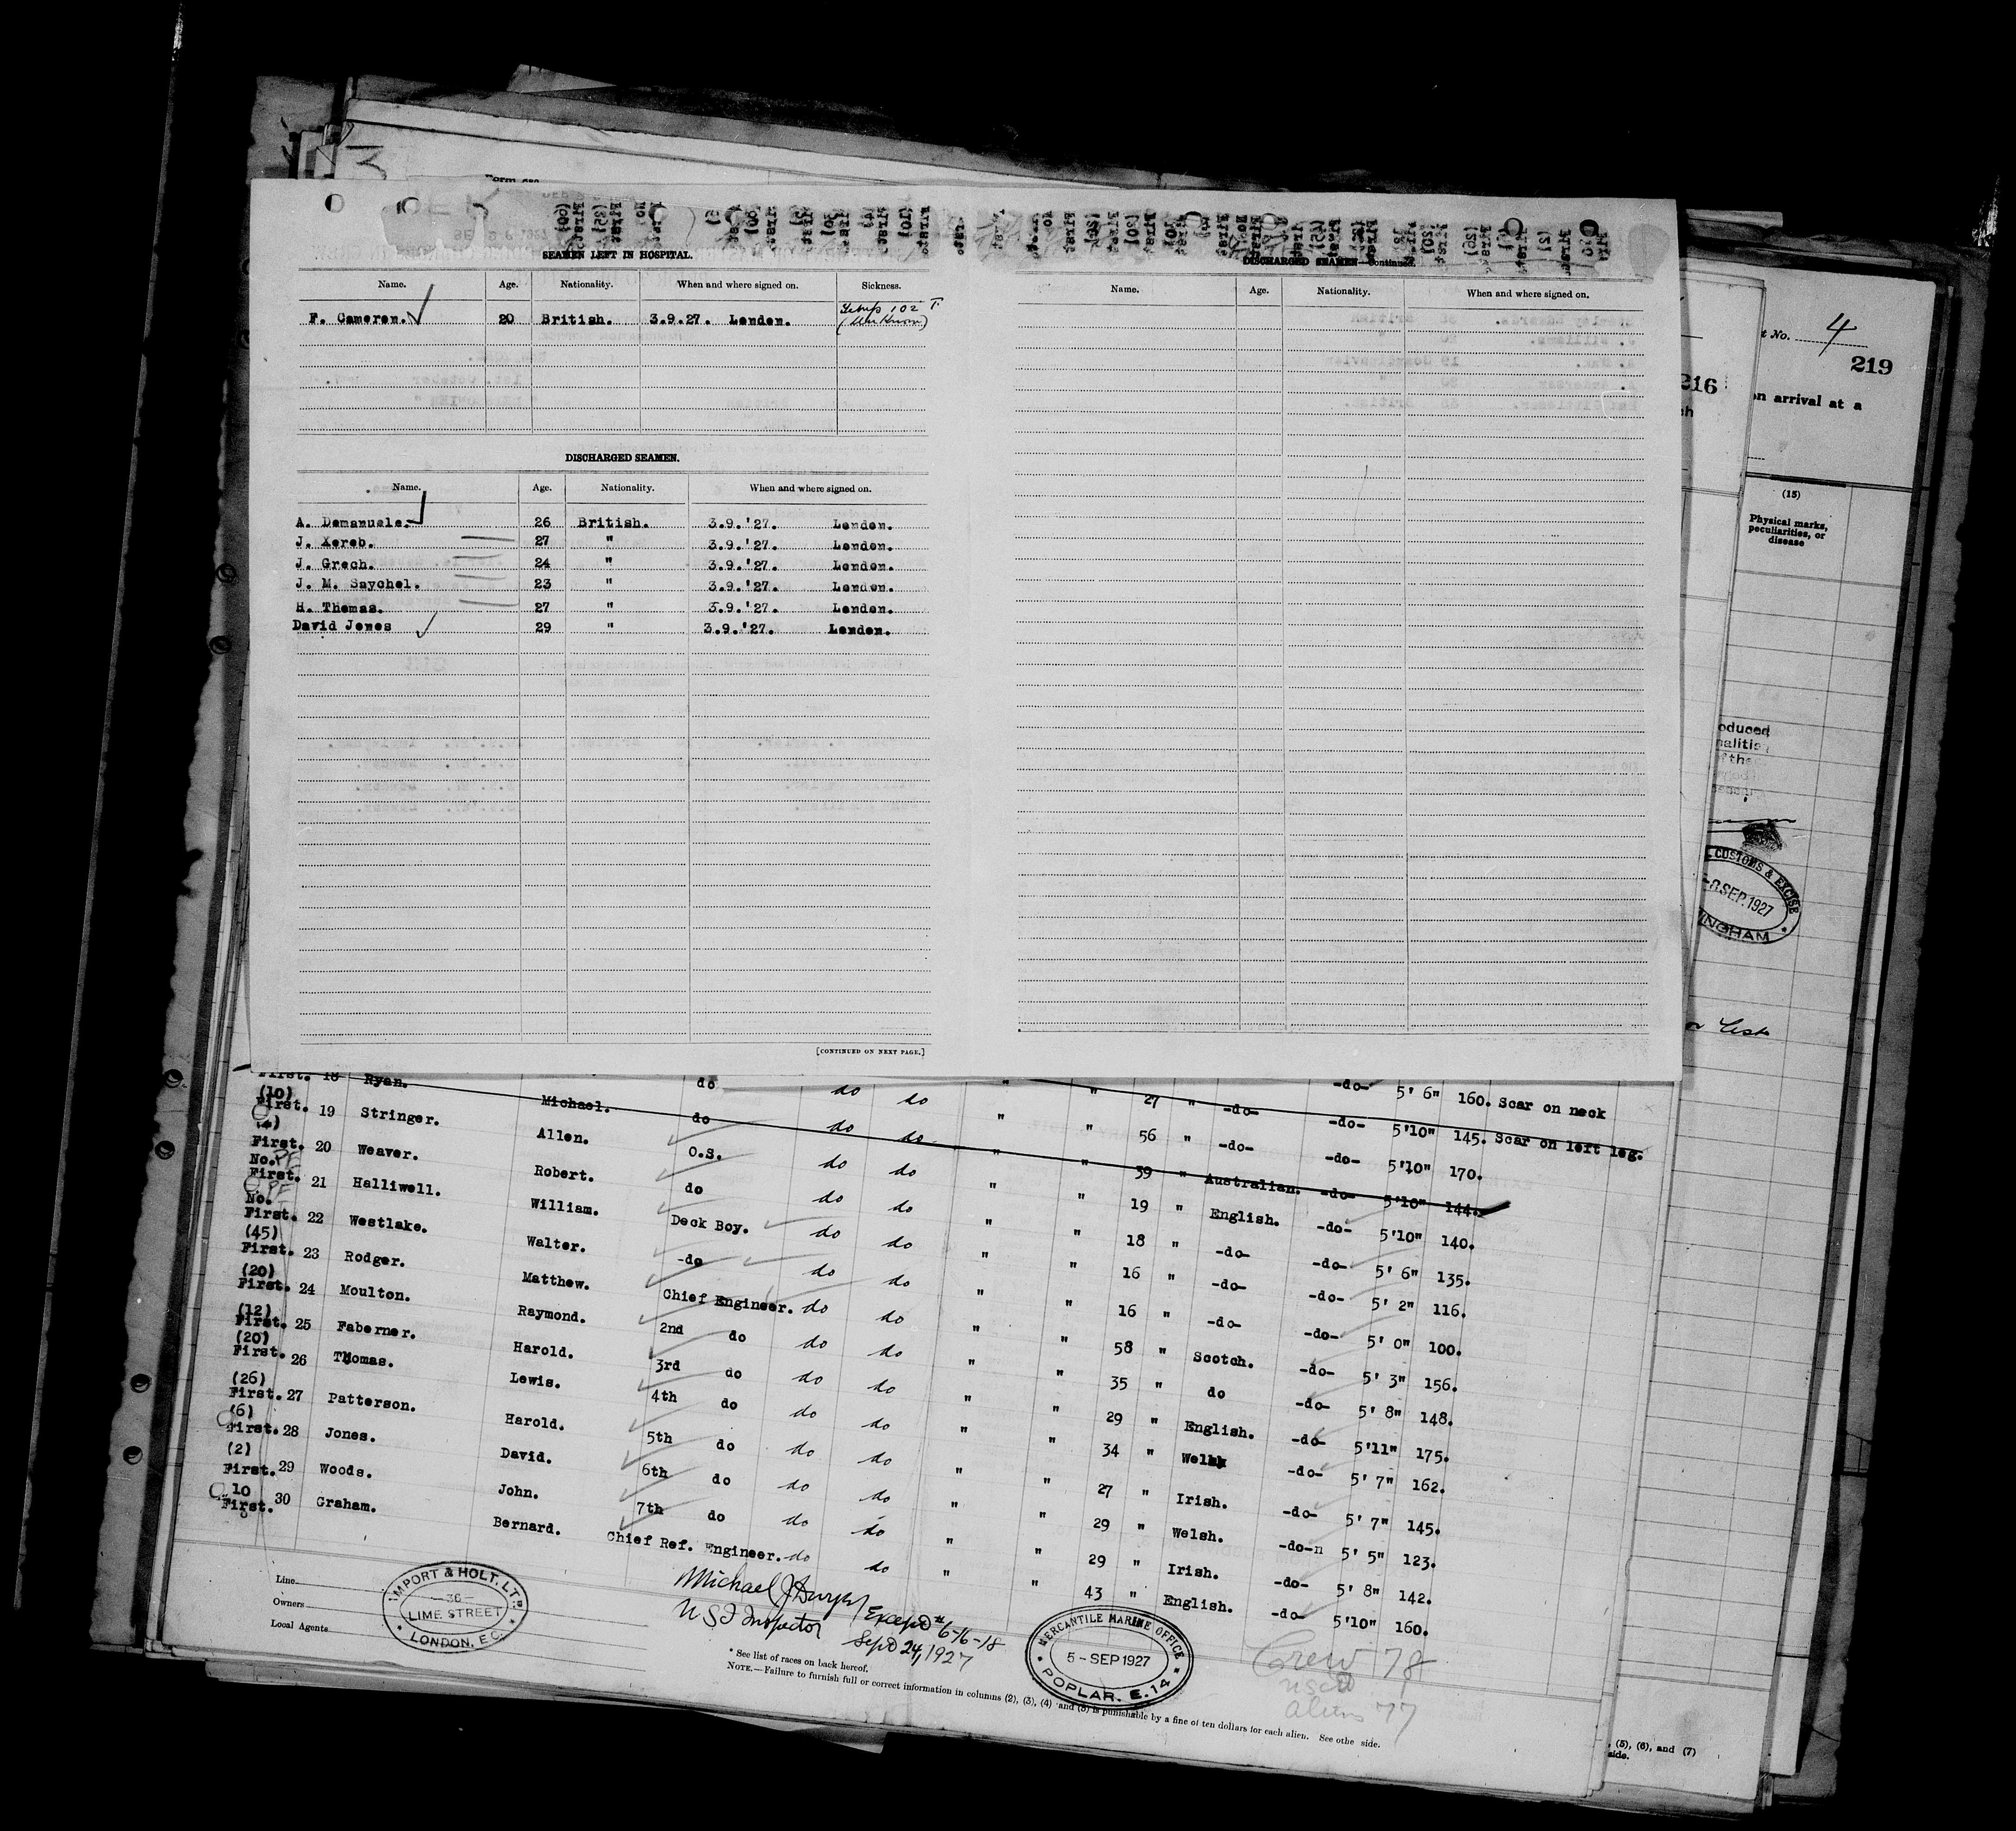 SEAMEN LEFT IN HOSPITAL.
Name. Age. Nationality. When and where signed on. Sickness.
F. Cameron. 20 British. 3.9.27. London. Temp 102
DISCHARGED SEAMEN.
Name. Age. Nationality. When and where signed on.
A. Demanuele. 26 British. 3.9.'27. London.
J. Xereb. 27 " 3.9.'27. London.
J. Grech. 24 " 3.9.'27. London.
J. M. Saychel. 23 " 3.9.'27. London.
H. Thomas. 27 " 3.9.'27. London.
David Jones 29 " 3.9.'27. London.
[CONTINUED ON NEXT PAGE.]
DISCHARGED SEAMEN—Continued.
Name. Age. Nationality. When and where signed on.
t No. 4
219
216
on arrival at a
(15)
Physical marks, peculiarities, or disease
CUSTOMS & EXCISE
SEP. 1927
INGHAM
First. 18 Ryan. Michael. do do do " " 27 " -do- -do- 5' 6" 160. Scar on neck
(10)
First. 19 Stringer. Allen. do do do " " 56 " -do- -do- 5'10" 145. Scar on left leg.
(4)
First. 20 Weaver. Robert. O.S. do do " " 39 " Australian. -do- 5'10" 170.
No.
First. 21 Halliwell. William. do do do " " 19 " English. -do- 5'10" 144.
No.
First. 22 Westlake. Walter. Deck Boy. do do " " 18 " -do- -do- 5'10" 140.
(45)
First. 23 Rodger. Matthew. -do do do " " 16 " -do- -do- 5' 6" 135.
(20)
First. 24 Moulton. Raymond. Chief Engineer. do do " " 16 " -do- -do- 5' 2" 116.
(12)
First. 25 Faberner. Harold. 2nd do do do " " 58 " Scotch. -do- 5' 0" 100.
(20)
First. 26 Thomas. Lewis. 3rd do do do " " 35 " do -do- 5' 3" 156.
(26)
First. 27 Patterson. Harold. 4th do do do " " 29 " English. -do- 5' 8" 148.
(6)
First. 28 Jones. David. 5th do do do " " 34 " Welsh -do- 5'11" 175.
(2)
First. 29 Woods. John. 6th do do do " " 27 " Irish. -do- 5' 7" 162.
10
First. 30 Graham. Bernard. 7th do do do " " 29 " Welsh. -do- 5' 7" 145.
Chief Ref. Engineer. do do " " 29 " Irish. -do-n 5' 5" 123.
43 " English. -do- 5' 8" 142.
-do- 5'10" 160.
Line
Owners
Local Agents
LAMPORT & HOLT. LTD
36
LIME STREET
LONDON, E.C.
Michael J Dwyer
U S I Inspector
Except # 6-16-18
Sept 24, 1927
MERCANTILE MARINE OFFICE
5 - SEP 1927
POPLAR. E.14
Crew 78
USC
aliens 77
* See list of races on back hereof.
NOTE.—Failure to furnish full or correct information in columns (2), (3), (4) and (5) is punishable by a fine of ten dollars for each alien. See othe side.
, (5), (6), and (7)
side.